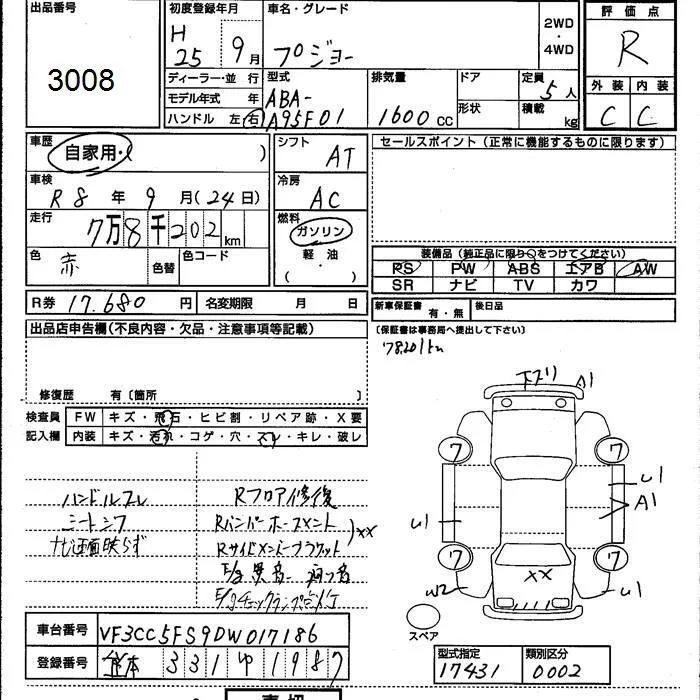 出品番号
3008
初度登録年月
H
25 9月
車名・グレード
プジョー
2WD
・
4WD
評価点
R
ディーラー・並 行
モデル年式 年
ハンドル 左・右
型式
ABA-
A95F01
排気量
1600cc
ドア
形状
定員
5人
積載
kg
外装 内装
C C
車歴
自家用・( )
シフト
AT
セールスポイント(正常に機能するものに限ります)
車検
R8年9月(24日)
冷房
AC
走行
7万8千202km
燃料
ガソリン
軽・油
( )
色
赤
色替
色コード
装備品(純正品に限り○をつけてください)
PS PW ABS エアB AW
SR ナビ TV カワ
R券 17.680円
名変期限 月 日
新車保証書
有・無
後日品
(保証書は事務局へ提出して下さい)
78,201km
出品店申告欄(不良内容・欠品・注意事項等記載)
修復歴 有〔箇所 〕
検査員
記入欄
FW キズ・飛石・ヒビ割・リペア跡・X要
内装 キズ・汚れ・コゲ・穴・スレ・キレ・破レ
下ズリ A1
7 7
U1
A1
U1
7 7
XX
W2 U1
スペア
ハンドルスレ
シートシワ
ナビ画面映らず
Rフロア修復
Rバンパーホースメント
Rサイドメンバーブラケット
XX
E/gチェックランプ点灯
車台番号 VF3CC5FS9DW017186
登録番号 331 ゆ 1987
型式指定
17431
類別区分
0002